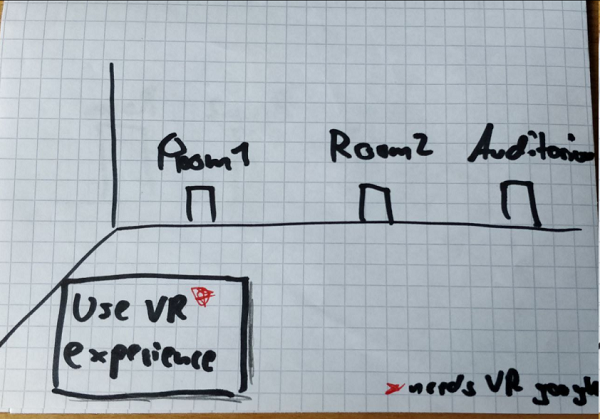 Room1
Room2
Auditorium
Use VR
experience
needs VR googl